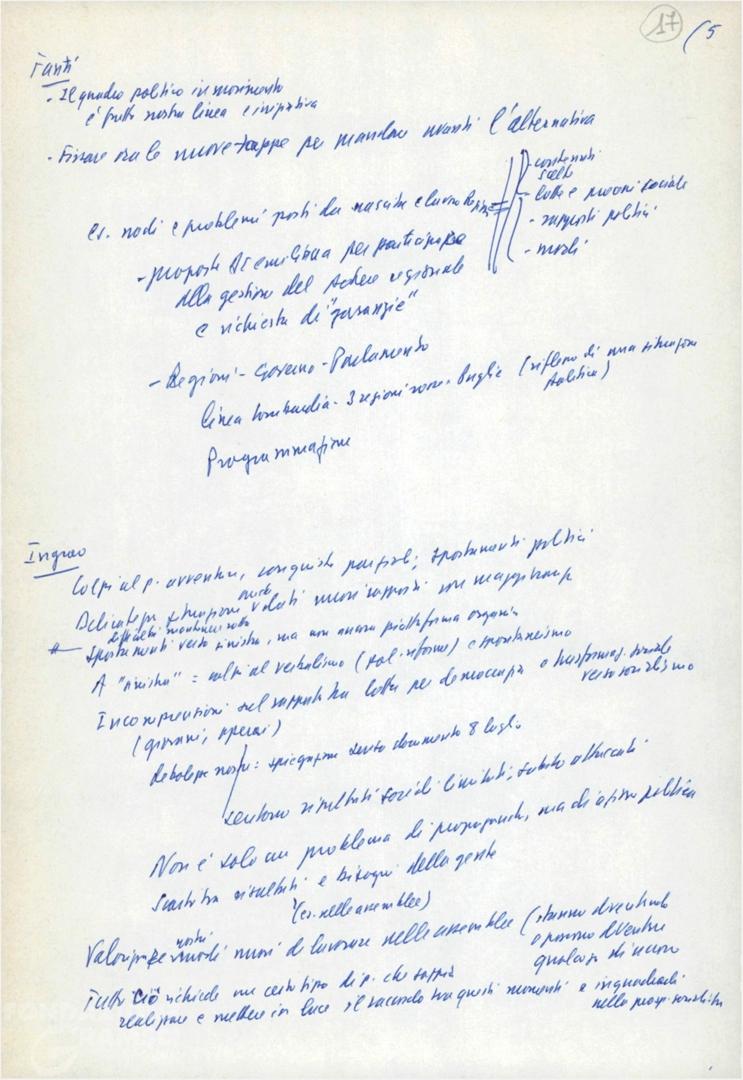 17
(5
Fanti
- Il quadro politico in movimento
è frutto nostra linea e iniziativa
- Fissare ora le nuove tappe per mandare avanti l'alternativa
- contenuti
scelte
- lotte e processi sociale
- rapporti politici
- modi
es. nodi e problemi posti da nascita e lavoro Regioni
- proposta DC emiliana per partecipare
alla gestione del potere regionale
e richiesta di "garanzie"
- Regioni - Governo - Parlamento
linea Lombardia - 3 regioni rosse - Puglie (riflesso di una situazione
politica)
Programmazione
Ingrao
Colpi al p. avventura, conquiste parziali; spostamenti politici
Delicatezza situazione nuovi rapporti con maggioranza
Spostamenti verso sinistra, ma non ancora piattaforma organica
A "sinistra" = colpi al verbalismo (sul riforme) e spontaneismo
Incomprensioni sul rapporto tra lotta per democrazia e trasformaz. sociale
verso socialismo
(giovani, operai)
Debolezze nostre: spiegazione documento 8 luglio
sentono risultati sociali limitati, subito attaccati
Non è solo un problema di propaganda, ma di azione politica
Scarto tra risultati e bisogni della gente
(es. nelle assemblee)
Valorizzare nostri modi nuovi di lavorare nelle assemblee (stanno diventando
o possono diventare
qualcosa di nuovo
Tutto ciò richiede un certo tipo di p. che sappia
realizzare e mettere in luce il raccordo tra questi momenti e inquadrarli
nella prosp. socialista